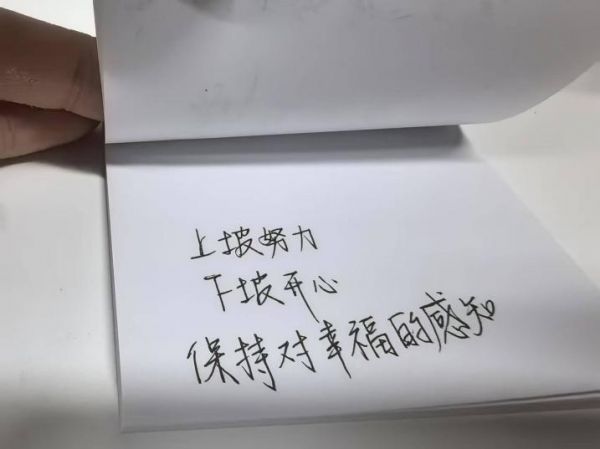 上坡努力
下坡开心
保持对幸福的感知